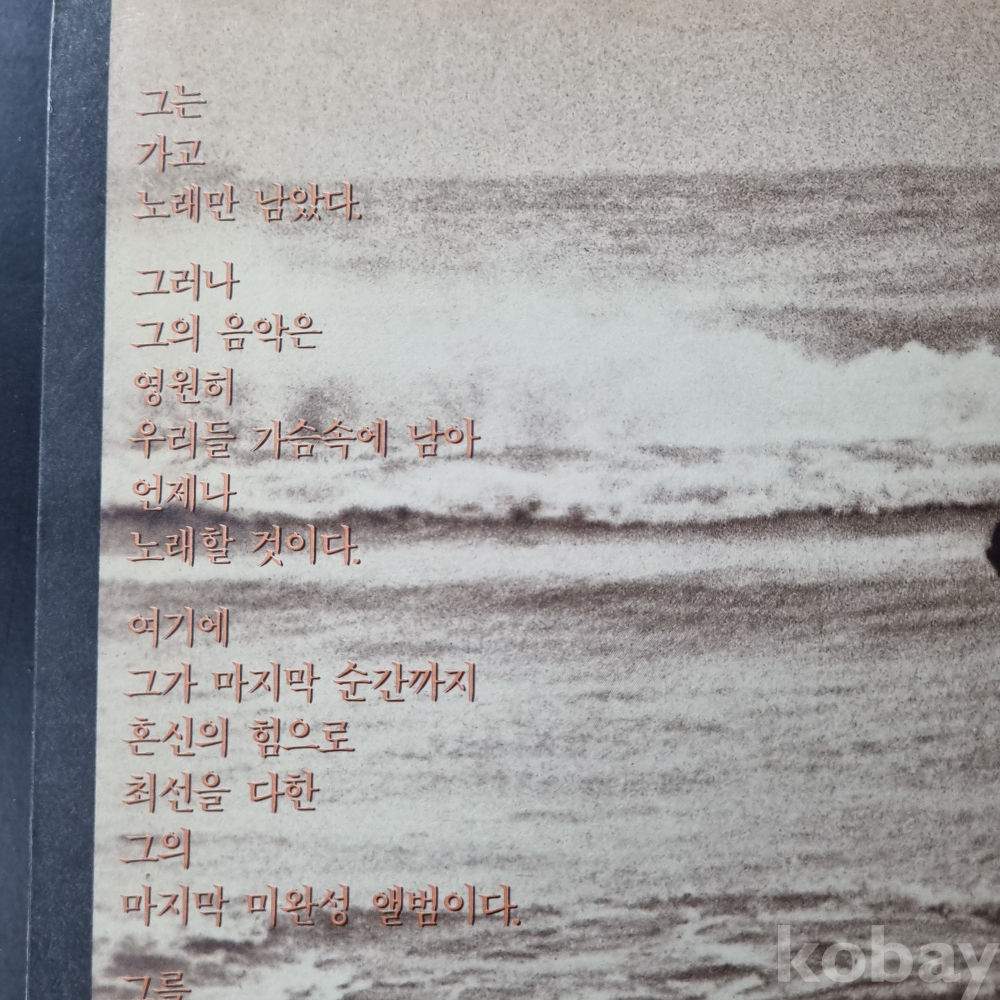 그는
가고
노래만 남았다.
그러나
그의 음악은
영원히
우리들 가슴속에 남아
언제나
노래할 것이다.
여기에
그가 마지막 순간까지
혼신의 힘으로
최선을 다한
그의
마지막 미완성 앨범이다.
그를
kobay